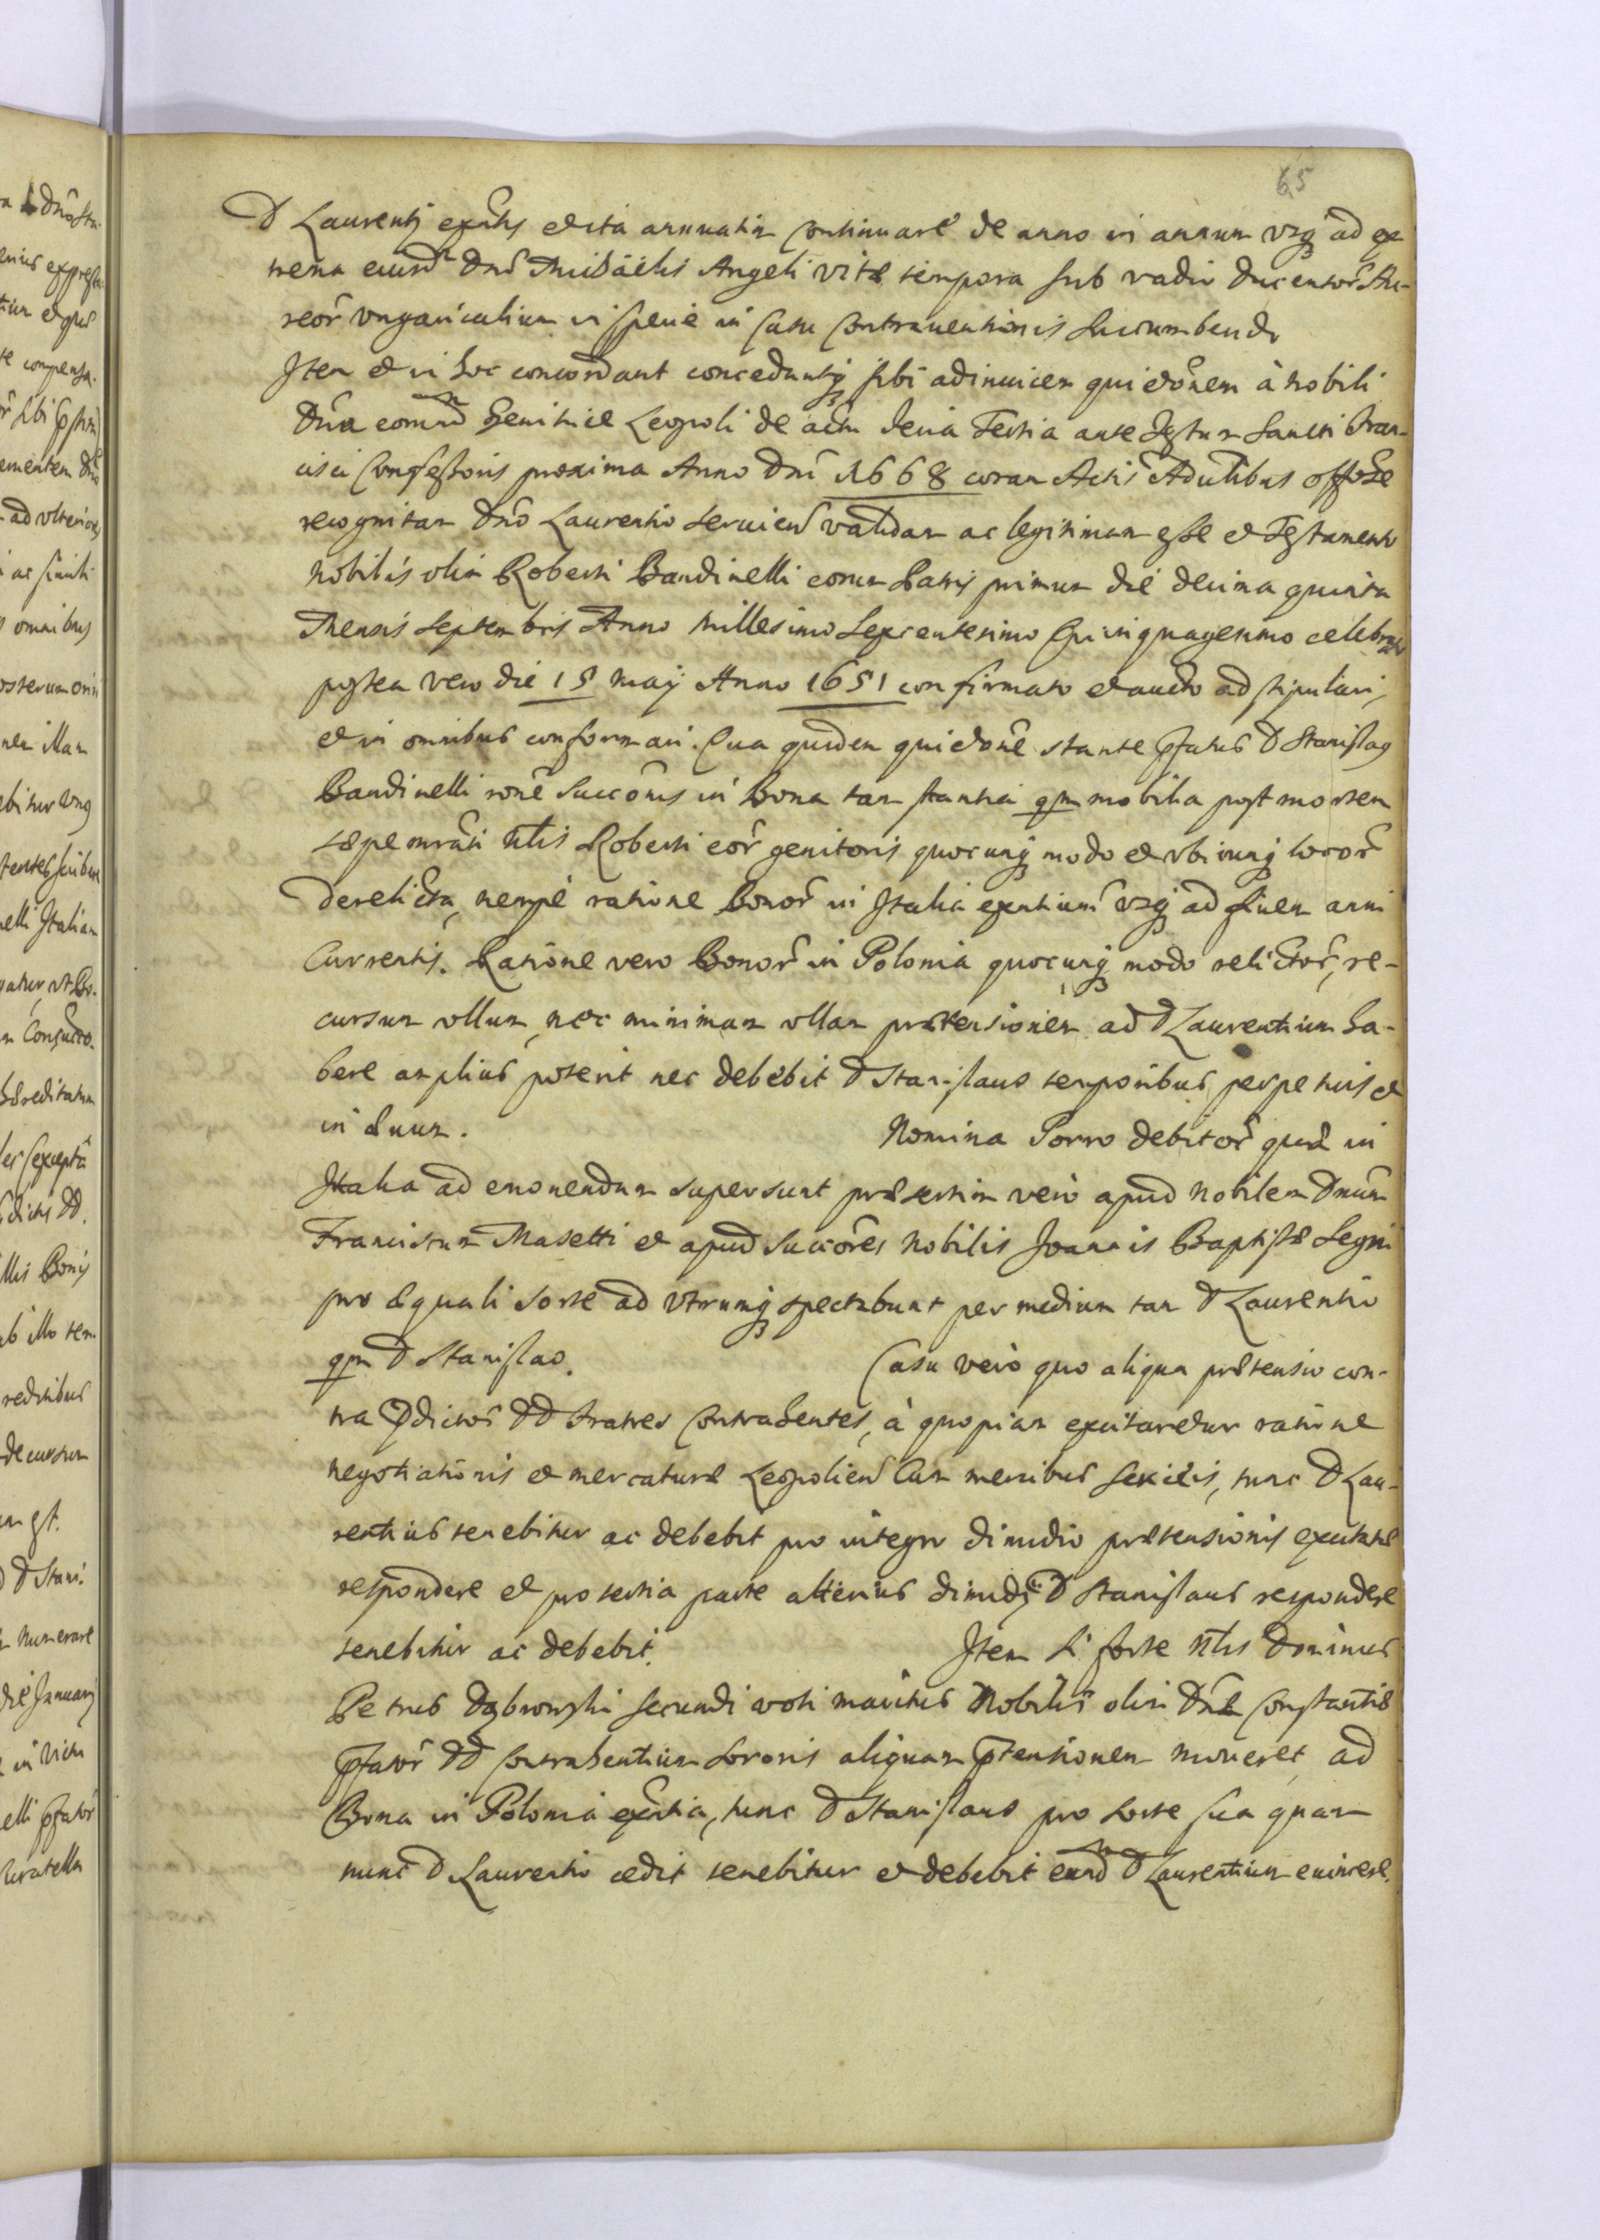 65
D Laurentij exntis et ita annuatim continuare de anno in annum vsq ad ex
trema eiusd Dni Michaelis Angeli vitæ tempora sub vadio ducentor Au-
reor vngaricalium in specie in casu contrauentionis succumbendo
Item et in hoc concordant conceduntq sibi adinuicem quietonem à nobili
Dna eorund Genitrice Leopoli de actu feria Tertia ante festum Sancti Fran-
cisci Confessoris proxima Anno Dni 1668 coram Actis Adultibus offose
recognitam Dno Laurentio seruien validam ac legitimam esse et Testamento
nobilis olim Roberti Bandinelli eorum Patris primum die decima quinta
Mensis Septembris Anno Millesimo Sexcentesimo Quinquagesimo celebrato
postea vero die 15 Maij Anno 1651 confirmato et aucto adstipulari,
et in omnibus conformari. Qua quidem quietone stante pfatus D Stanislaus
Bandinelli rone Succonis in Bona tam stantia qm mobilia post mortem
sæpe mrati Nlis Roberti eor genitoris quocunq modo et vbicunq locor
derelicta, nempè ratione Bonor in Italia exntium vsq ad finem anni
Currentis. Ratione vero Bonor in Polonia quocunq modo relictor, re-
cursum vllum, nec minimam vllam prætensionem ad D Laurentium ha-
bere amplius poterit nec debebit D Stanislaus temporibus perpetuis et
in æuum. Nomina Porro debitor quæ in
Italia ad emonendum supersunt præsertim verò apud nobilem Dnum
Franciscum Masetti et apud Succores Nobilis Joannis Baptistæ Segni
pro æquali sorte ad vtrumq spectabunt per medium tam D Laurentio
qm D Stanislao. Casu verò quo aliqua prætensio con-
tra pdictos DD fratres Contrahentes, à quopiam excitaretur ratione
negotiationis et mercaturæ Leopolien Cum mercibus sericeis, tunc D Lau-
rentius tenebitur ac debebit pro integro dimidio prætensionis excitatæ
respondere et pro tertia parte alterius dimidij D Stanislaus respondere
tenebitur ac debebit. Item si forte Nlis Dominus
Petrus Dąbrowski secundi voti maritus Nobilis olim Dnæ Constantiæ
pfator DD Contrahentium Sororis aliquam ptensionem moueret ad
Bona in Polonia exntia, tunc D Stanislaus pro sorte sua quam
nunc D Laurentio cedit tenebitur et debebit eund D Laurentium euincere.